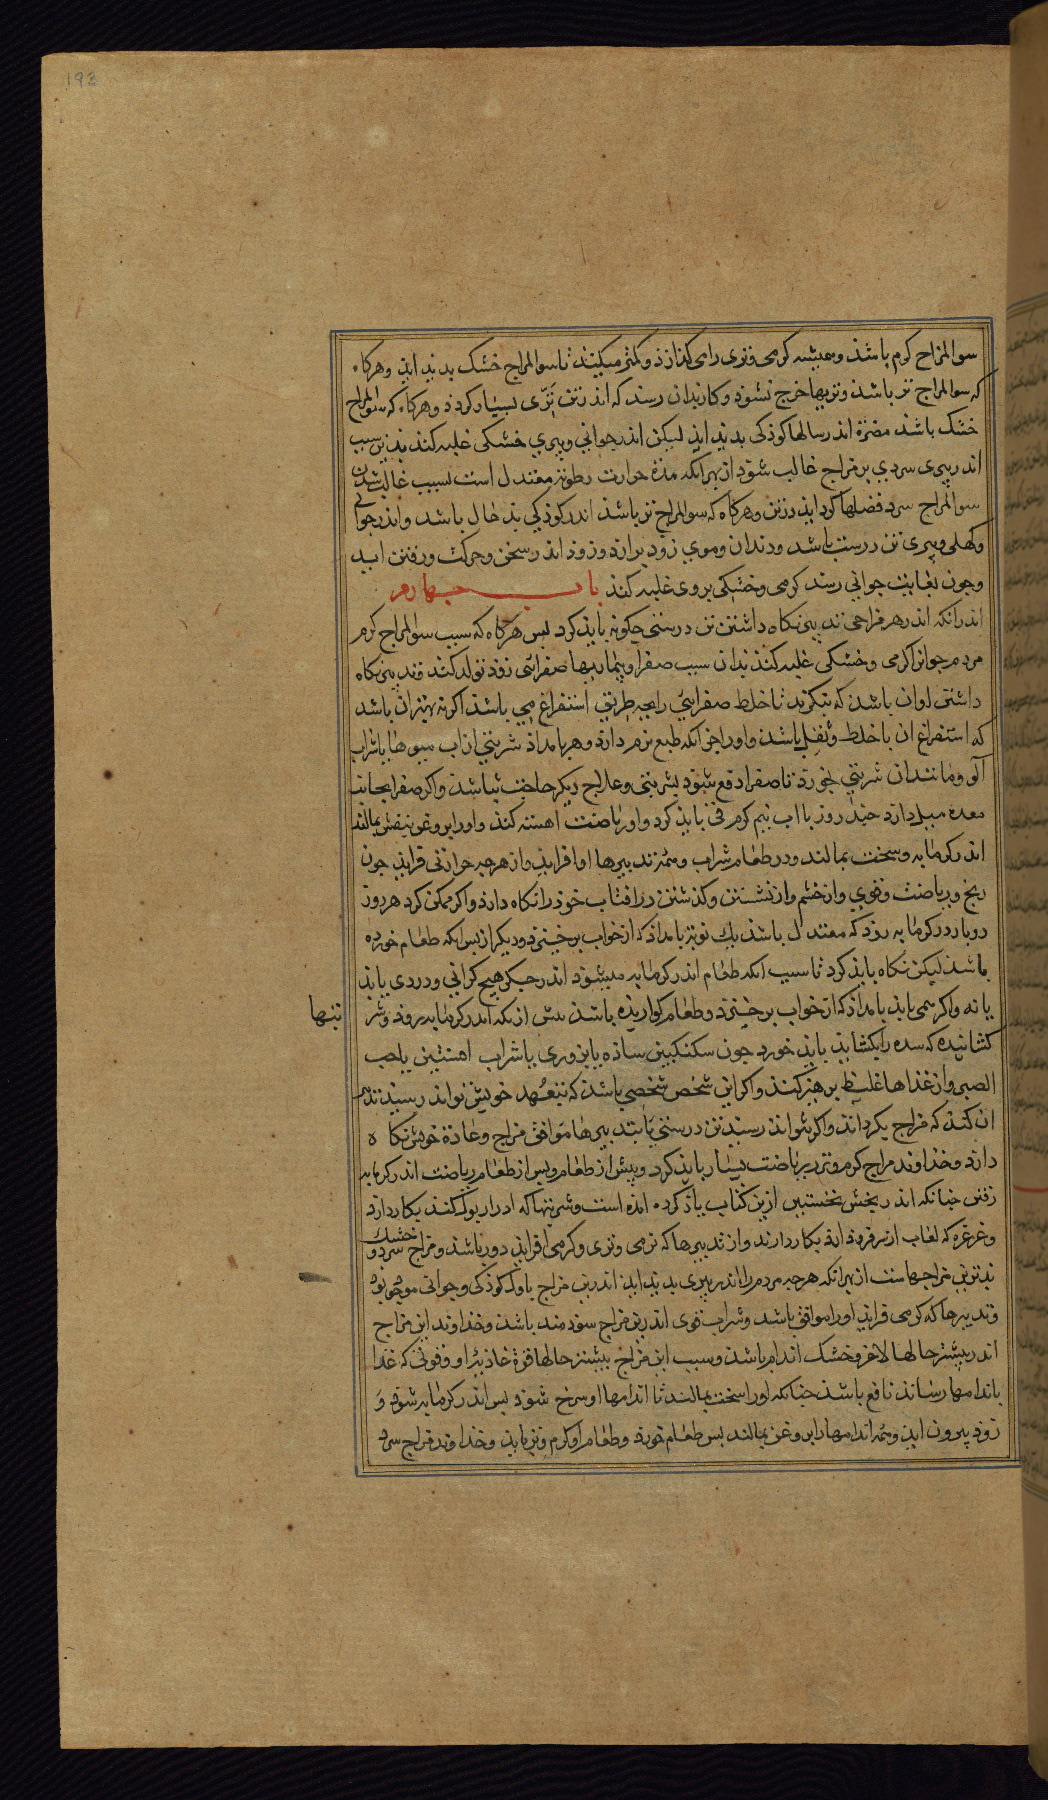 193
سوالمزاج کرم باشد وهمیشه کرمی وتری رامی کدازد وکمتر میکند تا سوالمزاج خشک بدید اید وهرکاه
که سوالمزاج تر باشد وتریها خرج نشود وکار بدان رسد که اندر تن تری بسیار کردد وهرکاه که سوالمزاج
خشک باشد مضرة اندر سالها کوذکی بدید اید لیکن اندر جوانی وپیری خشکی غلبه کند بدین سبب
اندر پیری سردی بر مزاج غالب شود از بهر انکه مدة حرارت رطوبة معتدل است بسبب غالب شدن
سوالمزاج سرد فضلها کرد اید در تن وهرکاه که سوالمزاج تر باشد اندر کوذکی بد حال باشد واندر جوانی
وکهلی وپیری تن درست باشد ودندان وموی زود برارد وزود اندر سخن وحرکت ورفتن اید
وجون بغایت جوانی رسد کرمی وخشکی بروی غلبه کند باب چهارم
اندر انکه اندر هر مزاجی تدبیر نکاه داشتن تن درستی چکونه باید کرد بس هرکاه که سبب سوالمزاج کرم
مردم جوانرا کرمی وخشکی غلبه کند بدان سبب صفرا وبیماریها صفرائی زود تولد کند وتدبیر نکاه
داشتن او ان باشد که بنکرند تا خلط صفرایی رابچه طریق استفراغ می باشد اکر نه بهتر ان باشد
که استفراغ ان با خلط وثفل باشد واورا جز انکه طبع نرم دارد وهر بامداد شربتی از اب میوها یا شراب
آلو ومانند ان شربتی بخورد تا صفرا دفع شود بشربتی وعلاج دیکر حاجت نباشد واکر صفرا بجانب
معده میل دارد چند روز با اب نیم کرم قی باید کرد واو ریاضت اهسته کند واورا بروغن بنفش بمالند
اندر کرمابه وسخت بمالند ودر طعام شراب وهمه تدبیرها او افراید واز هرچه حرارتی فراید جون
رنج وریاضت وقوی واز خشم واز نشستن وکذشتن در افتاب خود را نکاه دارد واکر ممکن کردد هر روز
دوبار در کرمابه رود که معتدل باشد یک نوبة بامداد که از خواب برخیزد ودیکر از بس انکه طعام خورده
باشد لیکن نکاه باید کرد تا سبب انکه طعام اندر کرمابه میشود اندر جکر هیچ کرانی ودردی یابد
یا نه واکر همی یابد بامداد که از خواب برخیزد وطعام کوارنده باشد بیش از انکه اندر کرمابه رود وشر
بتها
کشاینده که سده را بکشاید باید خورد جون سکنکبین ساذه یا بزوری یا شراب افسنتین یا حب
الصبر واز غذاها غلیظ برهیز کند واکر این شخص شخصی باشد که بتعهد خویش تواند رسید تدبیر
ان کند که مزاج بکرداند واکر نتواند رسید تن درستی بتدبیرها موافق مزاج وعادة خویش نکاه
دارد وخداوند مزاج کرم وتر در ریاضت بسیار باید کرد وبیش از طعام وبس از طعام ریاضت اندر کرمابه
رفتن جنانکه اندر بخش نخستین ازین کتاب یاد کرده امده است وشربتها که ادرار بول کند بکار دارد
وغرغره که لعاب از سر فرود اید بکار دارند واز تدبیرها که نرمی وتری وکرمی افراید دور باشد ومزاج سرد وخشک
بدترین مزاجهاست از بهر انکه هرچه مردم را اندر پیری بدید اید اندرین مزاج باول کوذکی وجوانی موجود بود
وتدبیرها که کرمی فراید اورا موافق باشد وشراب قوی اندرین مزاج سودمند باشد وخداوند این مزاج
اندر بیشتر حالها لاغر وخشک اندام باشد وسبب این مزاج بیشتر حالها قوة غاذیه او وقوتی که غذا
باندامها رساند نافع باشد جنانکه اورا سخت بمالند تا اندامها او سرخ شود بس اندر کرمابه شود و
زود بیرون اید وهمه اندامها را بروغن بمالند بس طعام خورد وطعام او کرم وتر باید وخداوند مزاج سرد